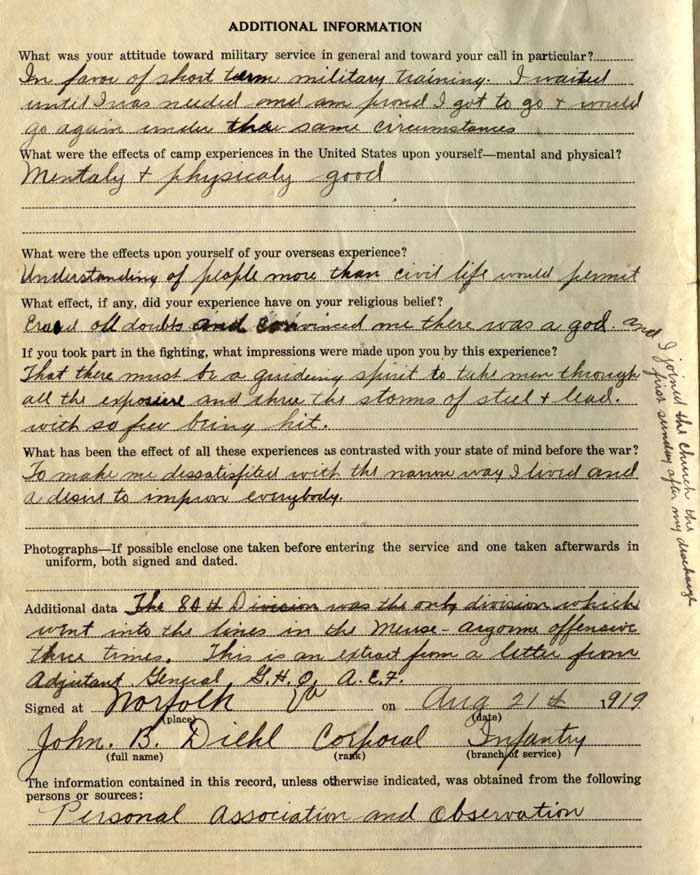 ADDITIONAL INFORMATION
What was your attitude toward military service in general and toward your call in particular?
In favor of short term military training. I waited
until I was needed and am proud I got to go + would
go again under the same circumstances
What were the effects of camp experiences in the United States upon yourself—mental and physical?
Mentaly + physicaly good
What were the effects upon yourself of your overseas experience?
Understanding of people more than civil life would permit
What effect, if any, did your experience have on your religious belief?
all doubts and convinced me there was a god. and
I joined the church the
first sunday after my discharge
If you took part in the fighting, what impressions were made upon you by this experience?
That there must be a guideing spirit to take men through
all the exposure and three the storms of steel + lead.
with so few being hit.
What has been the effect of all these experiences as contrasted with your state of mind before the war?
To make me dessatisfited with the narrow way I lived and
a desire to improv everybody.
Photographs—If possible enclose one taken before entering the service and one taken afterwards in
uniform, both signed and dated.
Additional data The 80th Division was the only division which
went into the lines in the Meuse-Argonne offensive
three times. This is an extract from a letter from
Adjutant General G.H.Q. A.E.F.
Signed at Norfolk Va on Aug 21th 1919
(place) (date)
John. B. Diehl Corporal Infantry
(full name) (rank) (branch of service)
The information contained in this record, unless otherwise indicated, was obtained from the following
persons or sources:
Personal Association and Observation